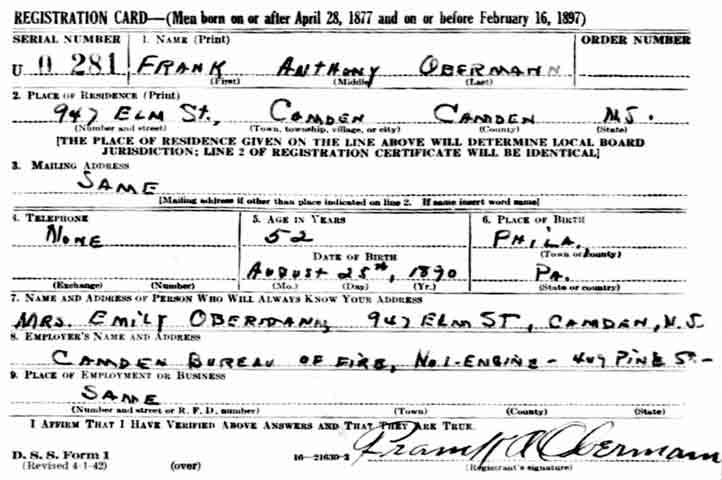 REGISTRATION CARD—(Men born on or after April 28, 1877 and on or before February 16, 1897)
SERIAL NUMBER 1. NAME (Print) ORDER NUMBER
U 0 281 FRANK ANTHONY OBERMANN
(First) (Middle) (Last)
2. PLACE OF RESIDENCE (Print)
947 ELM ST., CAMDEN CAMDEN N.J.
(Number and street) (Town, township, village, or city) (County) (State)
[THE PLACE OF RESIDENCE GIVEN ON THE LINE ABOVE WILL DETERMINE LOCAL BOARD
JURISDICTION; LINE 2 OF REGISTRATION CERTIFICATE WILL BE IDENTICAL]
3. MAILING ADDRESS
SAME
[Mailing address if other than place indicated on line 2. If same insert word same]
4. TELEPHONE 5. AGE IN YEARS 6. PLACE OF BIRTH
NONE 52 PHILA.
DATE OF BIRTH (Town or county)
AUGUST 25th, 1890 PA.
(Exchange) (Number) (Mo.) (Day) (Yr.) (State or country)
7. NAME AND ADDRESS OF PERSON WHO WILL ALWAYS KNOW YOUR ADDRESS
MRS. EMILY OBERMANN, 947 ELM ST, CAMDEN, N.J.
8. EMPLOYER'S NAME AND ADDRESS
CAMDEN BUREAU OF FIRE, NO.1-ENGINE - 409 PINE ST.-
9. PLACE OF EMPLOYMENT OR BUSINESS
SAME
(Number and street or R. F. D. number) (Town) (County) (State)
I AFFIRM THAT I HAVE VERIFIED ABOVE ANSWERS AND THAT THEY ARE TRUE.
Frank A Obermann
D. S. S. Form 1 16—21630-2 (Registrant's signature)
(Revised 4-1-42) (over)